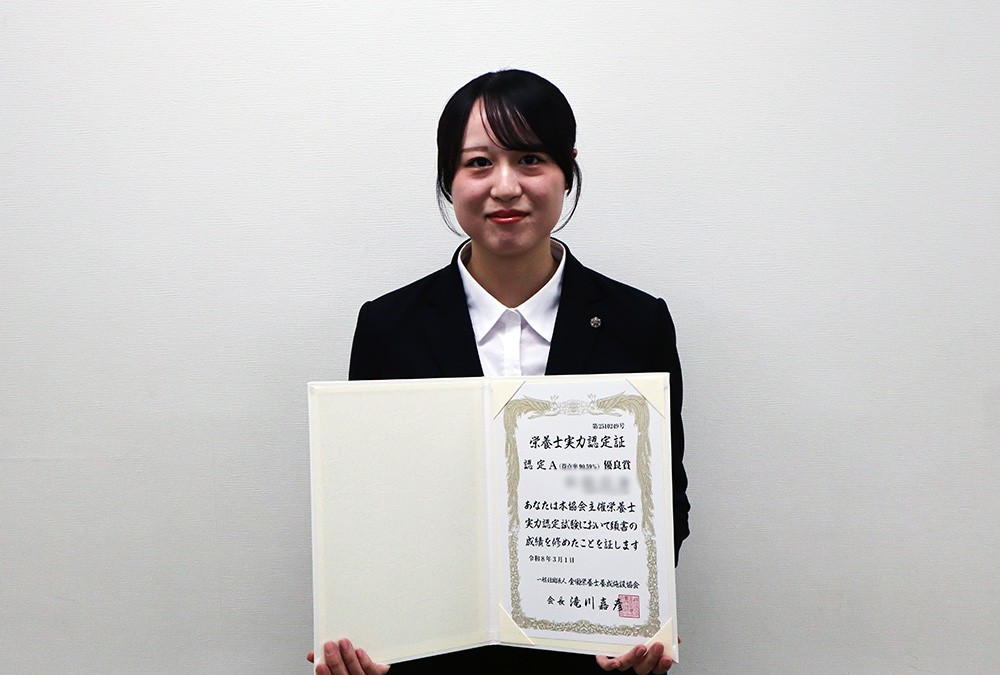 第2510249号
栄養士実力認定証
認定A（得点率90.59%）優良賞
あなたは本協会主催栄養士
実力認定試験において頭書の
成績を修めたことを証します
令和8年3月1日
一般社団法人 全国栄養士養成施設協会
会長 滝川嘉彦